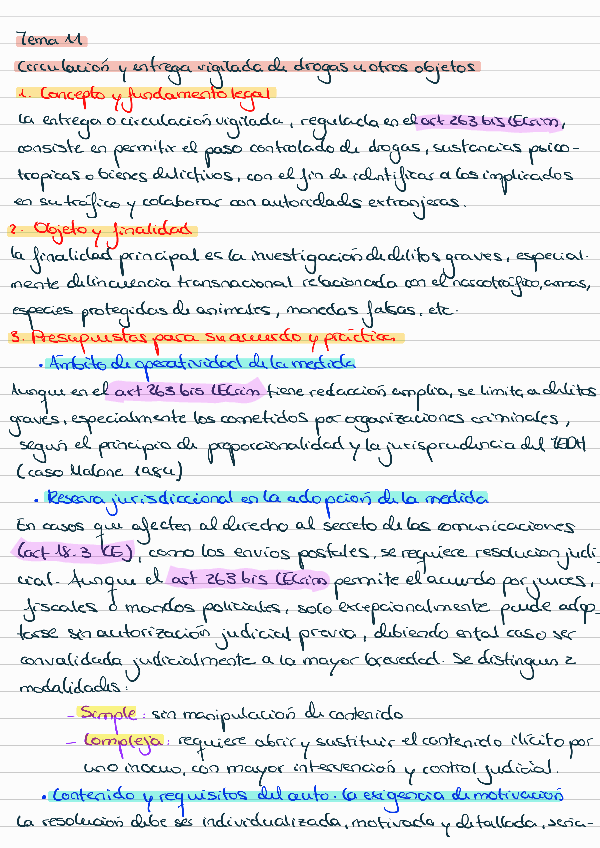 Tema 11
Circulación y entrega vigilada de drogas u otros objetos
1. Concepto y fundamento legal
La entrega o circulación vigilada, regulada en el art 263 bis LECrim,
consiste en permitir el paso controlado de drogas, sustancias psico-
tropicas o bienes delictivos, con el fin de identificar a los implicados
en su tráfico y colaborar con autoridades extranjeras.
2. Objeto y finalidad
La finalidad principal es la investigación de delitos graves, especial-
mente delincuencia transnacional relacionada con el narcotráfico, armas,
especies protegidas de animales, monedas falsas, etc.
3. Presupuestas para su acuerdo y práctica
• Ámbito de operatividad de la medida
Aunque en el art 263 bis LECrim tiene redacción amplia, se limita a delitos
graves, especialmente los cometidos por organizaciones criminales,
según el principio de proporcionalidad y la jurisprudencia del TEDH
(caso Malone 1984)
• Reserva jurisdiccional en la adopción de la medida
En casos que afecten al derecho al secreto de las comunicaciones
(art 18.3 CE), como los envíos postales, se requiere resolución judi-
cial. Aunque el art 263 bis LECrim permite el acuerdo por jueces,
fiscales o mandos policiales, solo excepcionalmente puede adop-
tarse sin autorización judicial previa, debiendo en tal caso ser
convalidada judicialmente a la mayor brevedad. Se distinguen 2
modalidades:
- Simple: sin manipulación de contenido
- Compleja: requiere abrir y sustituir el contenido ilícito por
uno inocuo, con mayor intervención y control judicial.
• Contenido y requisitos del auto. La exigencia de motivación
La resolución debe ser individualizada, motivada y detallada, seña-